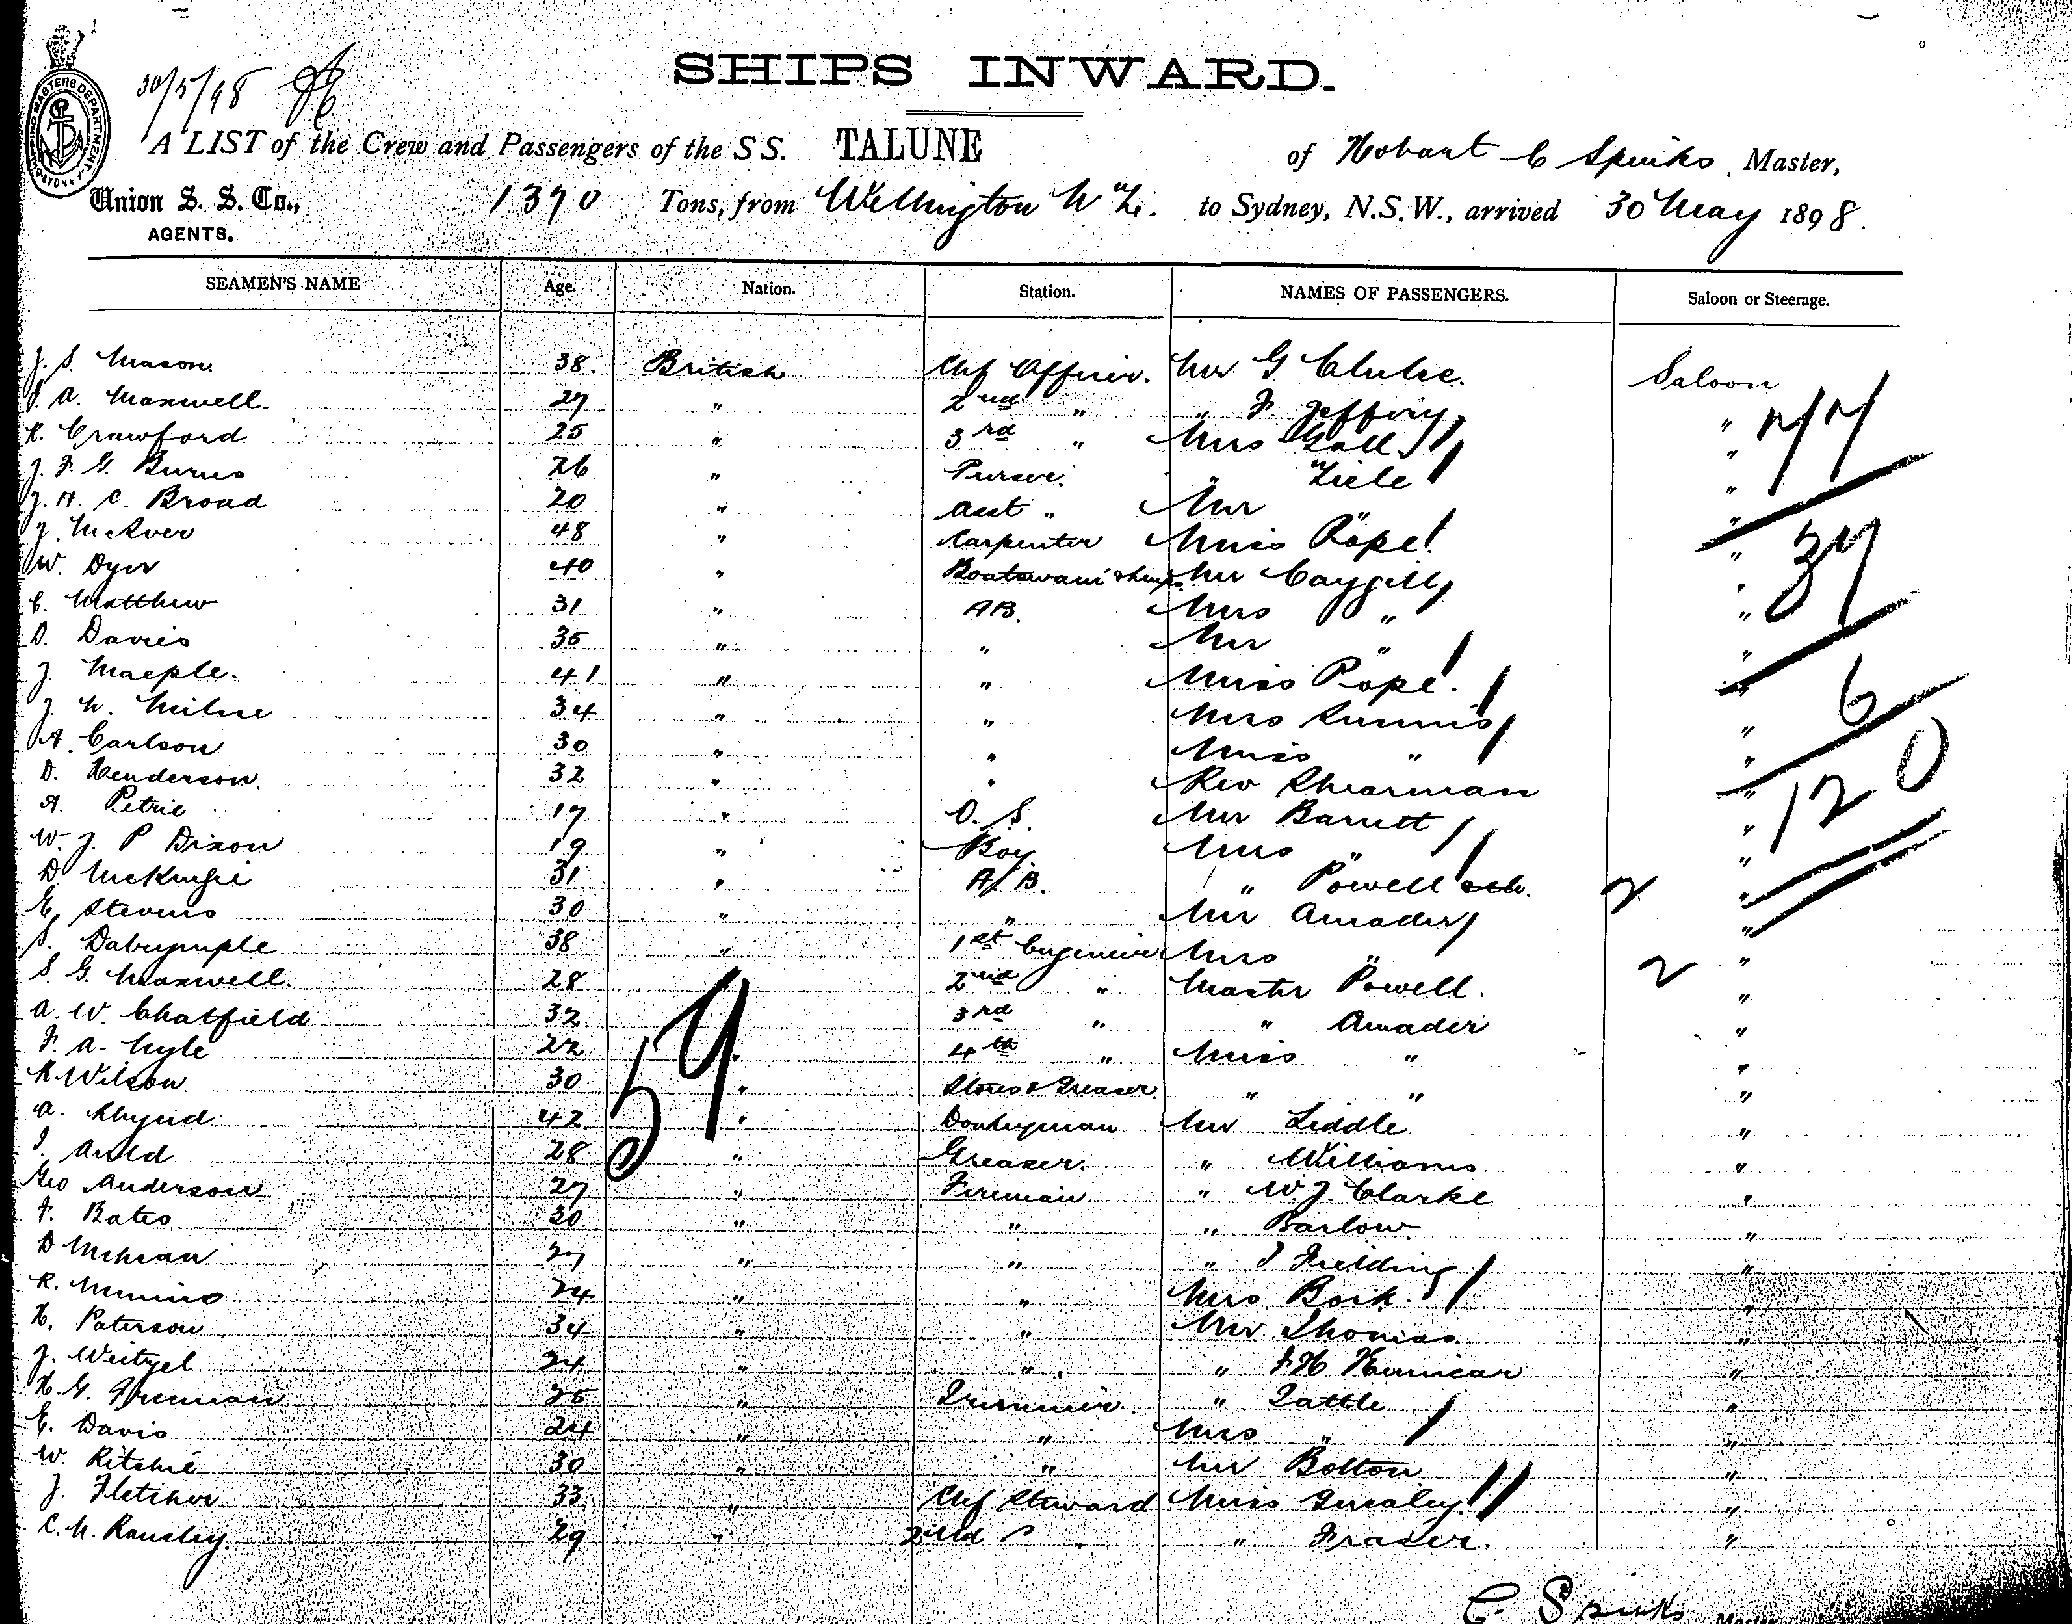 30/5/98
SHIPS INWARD.
A LIST of the Crew and Passengers of the S S. TALUNE of Hobart C Spinks, Master,
Union S. S. Co., 1390 Tons, from Wellington N Z. to Sydney, N.S.W., arrived 30 May 1898.
AGENTS.
SEAMEN'S NAME Age. Nation. Station. NAMES OF PASSENGERS. Saloon or Steerage.
J. S. Mason 38. British Chf Officer. Mr G. Clulee. Saloon
A. Maxwell. 27 " 2nd " " F Jeffery "
R. Crawford 25 " 3rd " Mrs Gall "
J. F. G. Burns 26 " Purser. " Ziele "
J. H. C. Broad 20 " Asst " Mr " "
J. McAver 48 " Carpenter Miss Pope "
W. Dyer 40 " Boatswain & Lamps Mr Caygill "
C. Matthew 31 " AB. Mrs " "
D. Davies 35 " " Mr " "
J. Maeple. 41 " " Miss Pope. "
J. N. Milne 34 " " Mrs "
A. Carlson 30 " " Miss " "
D. Henderson. 32 " " Rev Shearman "
A. Petrie 17 " O. S. Mr Barnett "
W. J. P Dixon 19 " Boy. Mrs " "
D McKenzie 31 " A.B. " Powell 2 "
E. Stevens 30 " " Mr Amader "
S. Dalrymple 38 " 1st Engineer Mrs " "
S. G. Maxwell. 28 " 2nd " Master Powell. 2 "
A. W. Chatfield 32 3rd " " Amader "
F. A. Lyle 22 " 4th " Miss " "
R Wilson 30 " Stores & Greaser " " "
A. Rhynd 42 " Donkeyman Mr Liddle "
J. Auld 28 " Greaser. " Williams "
Geo Anderson 27 " Fireman " W. J. Clarke "
F. Bates 30 " " " Barlow "
D McLean 27 " " " J Fielding "
R. Munro 24 " " Mrs Bork. "
H. Paterson 34 " " Mr Thomas "
J. Weitzel 24 " " " "
H. G. Freeman 25 " Trimmer. " Tattle "
E. Davis 24 " " Mrs " "
W. Ritchie 30 " " Mr Bolton "
J. Fletcher 33 " Chf Steward Miss "
C. N. Ransley. 29 " 2nd " " Fraser. "
59
77
37
6
120
C. Spinks